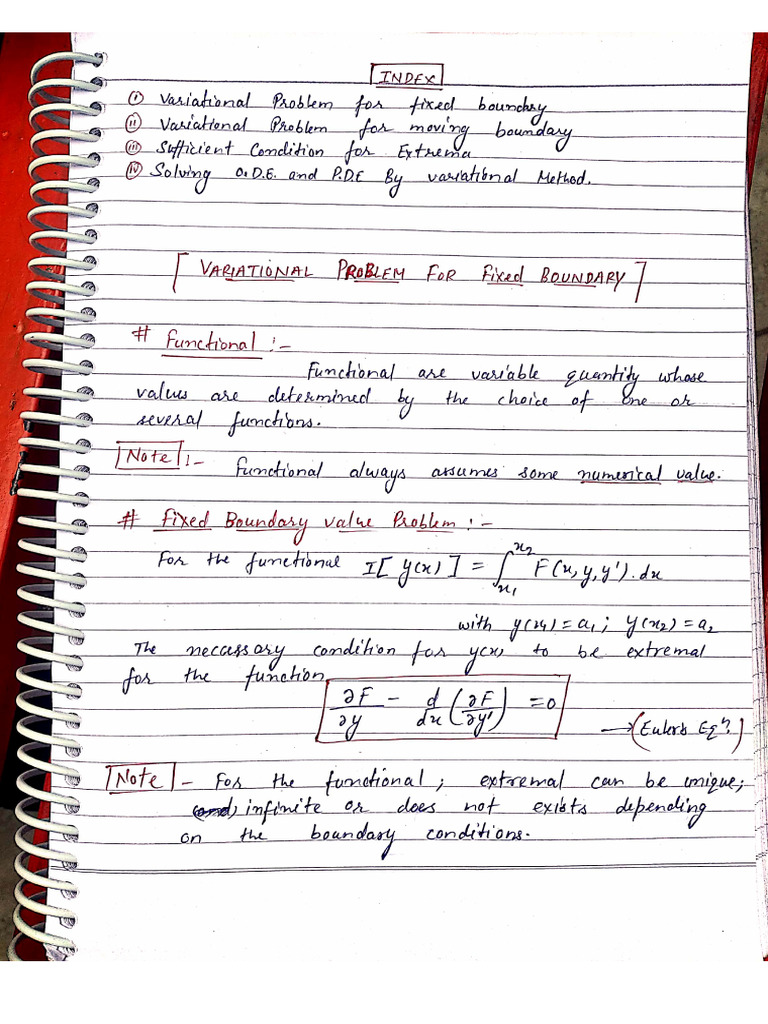 INDEX
(i) Variational Problem for fixed boundary
(ii) Variational Problem for moving boundary
(iii) Sufficient Condition for Extrema
(iv) Solving O.D.E. and P.D.E By variational Method.
[VARIATIONAL PROBLEM FOR Fixed BOUNDARY]
# Functional :-
Functional are variable quantity whose
values are determined by the choice of one or
several functions.
Note :- Functional always assumes some numerical value.
# Fixed Boundary value Problem :-
For the functional I[y(x)] = ∫_{x₁}^{x₂} F(x, y, y').dx
with y(x₁) = a₁ ; y(x₂) = a₂
The neccessory condition for y(x) to be extremal
for the function
∂F/∂y - d/dx (∂F/∂y') = 0 → (Euler's Eqⁿ.)
Note - For the functional ; extremal can be unique;
infinite or does not exists depending
on the boundary conditions.